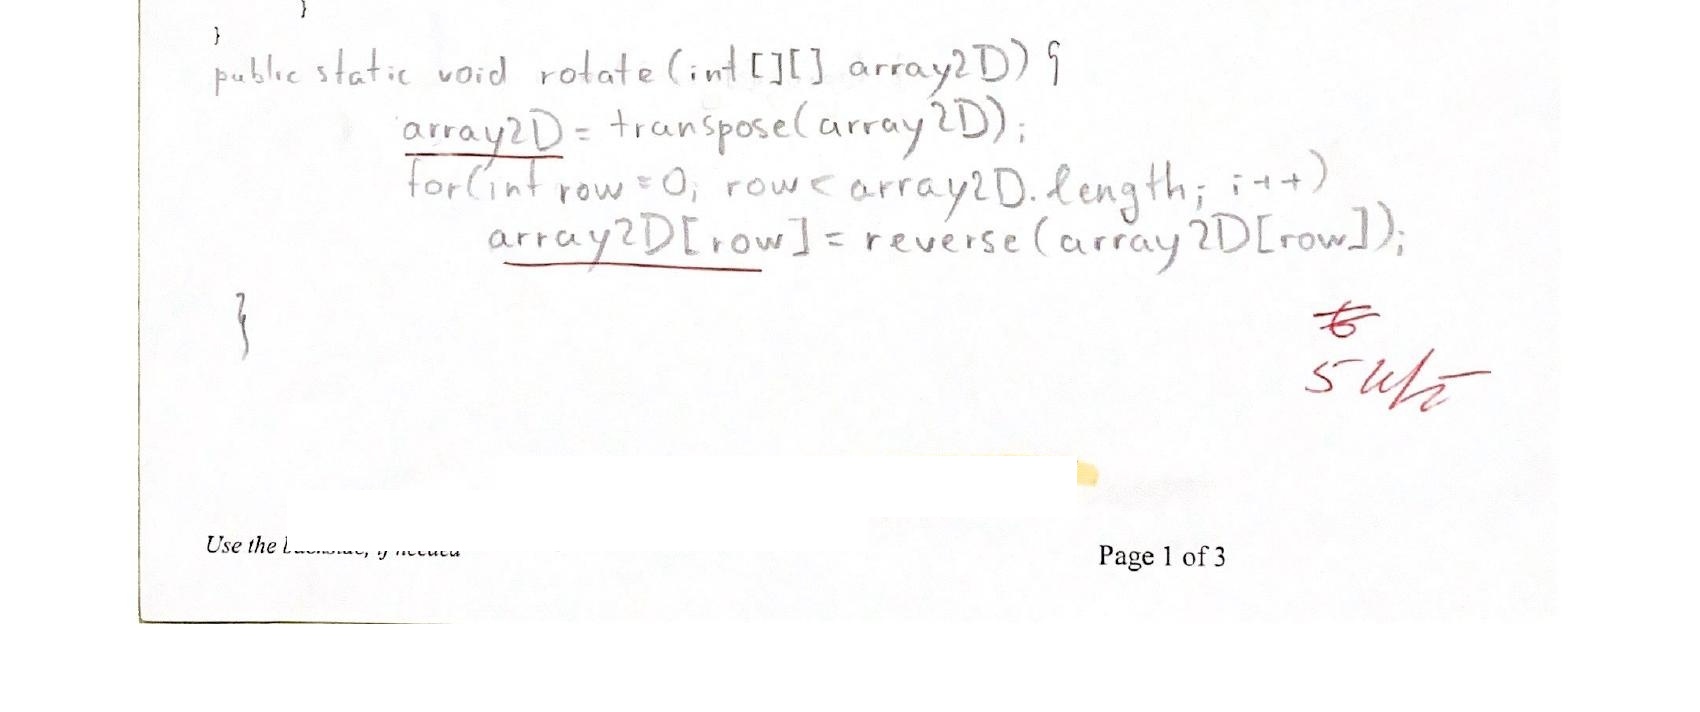 }
}
public static void rotate(int[][] array2D) {
array2D = transpose(array2D);
for(int row = 0; row < array2D.length; i++)
array2D[row] = reverse(array2D[row]);
}
6
5
Use the
Page 1 of 3